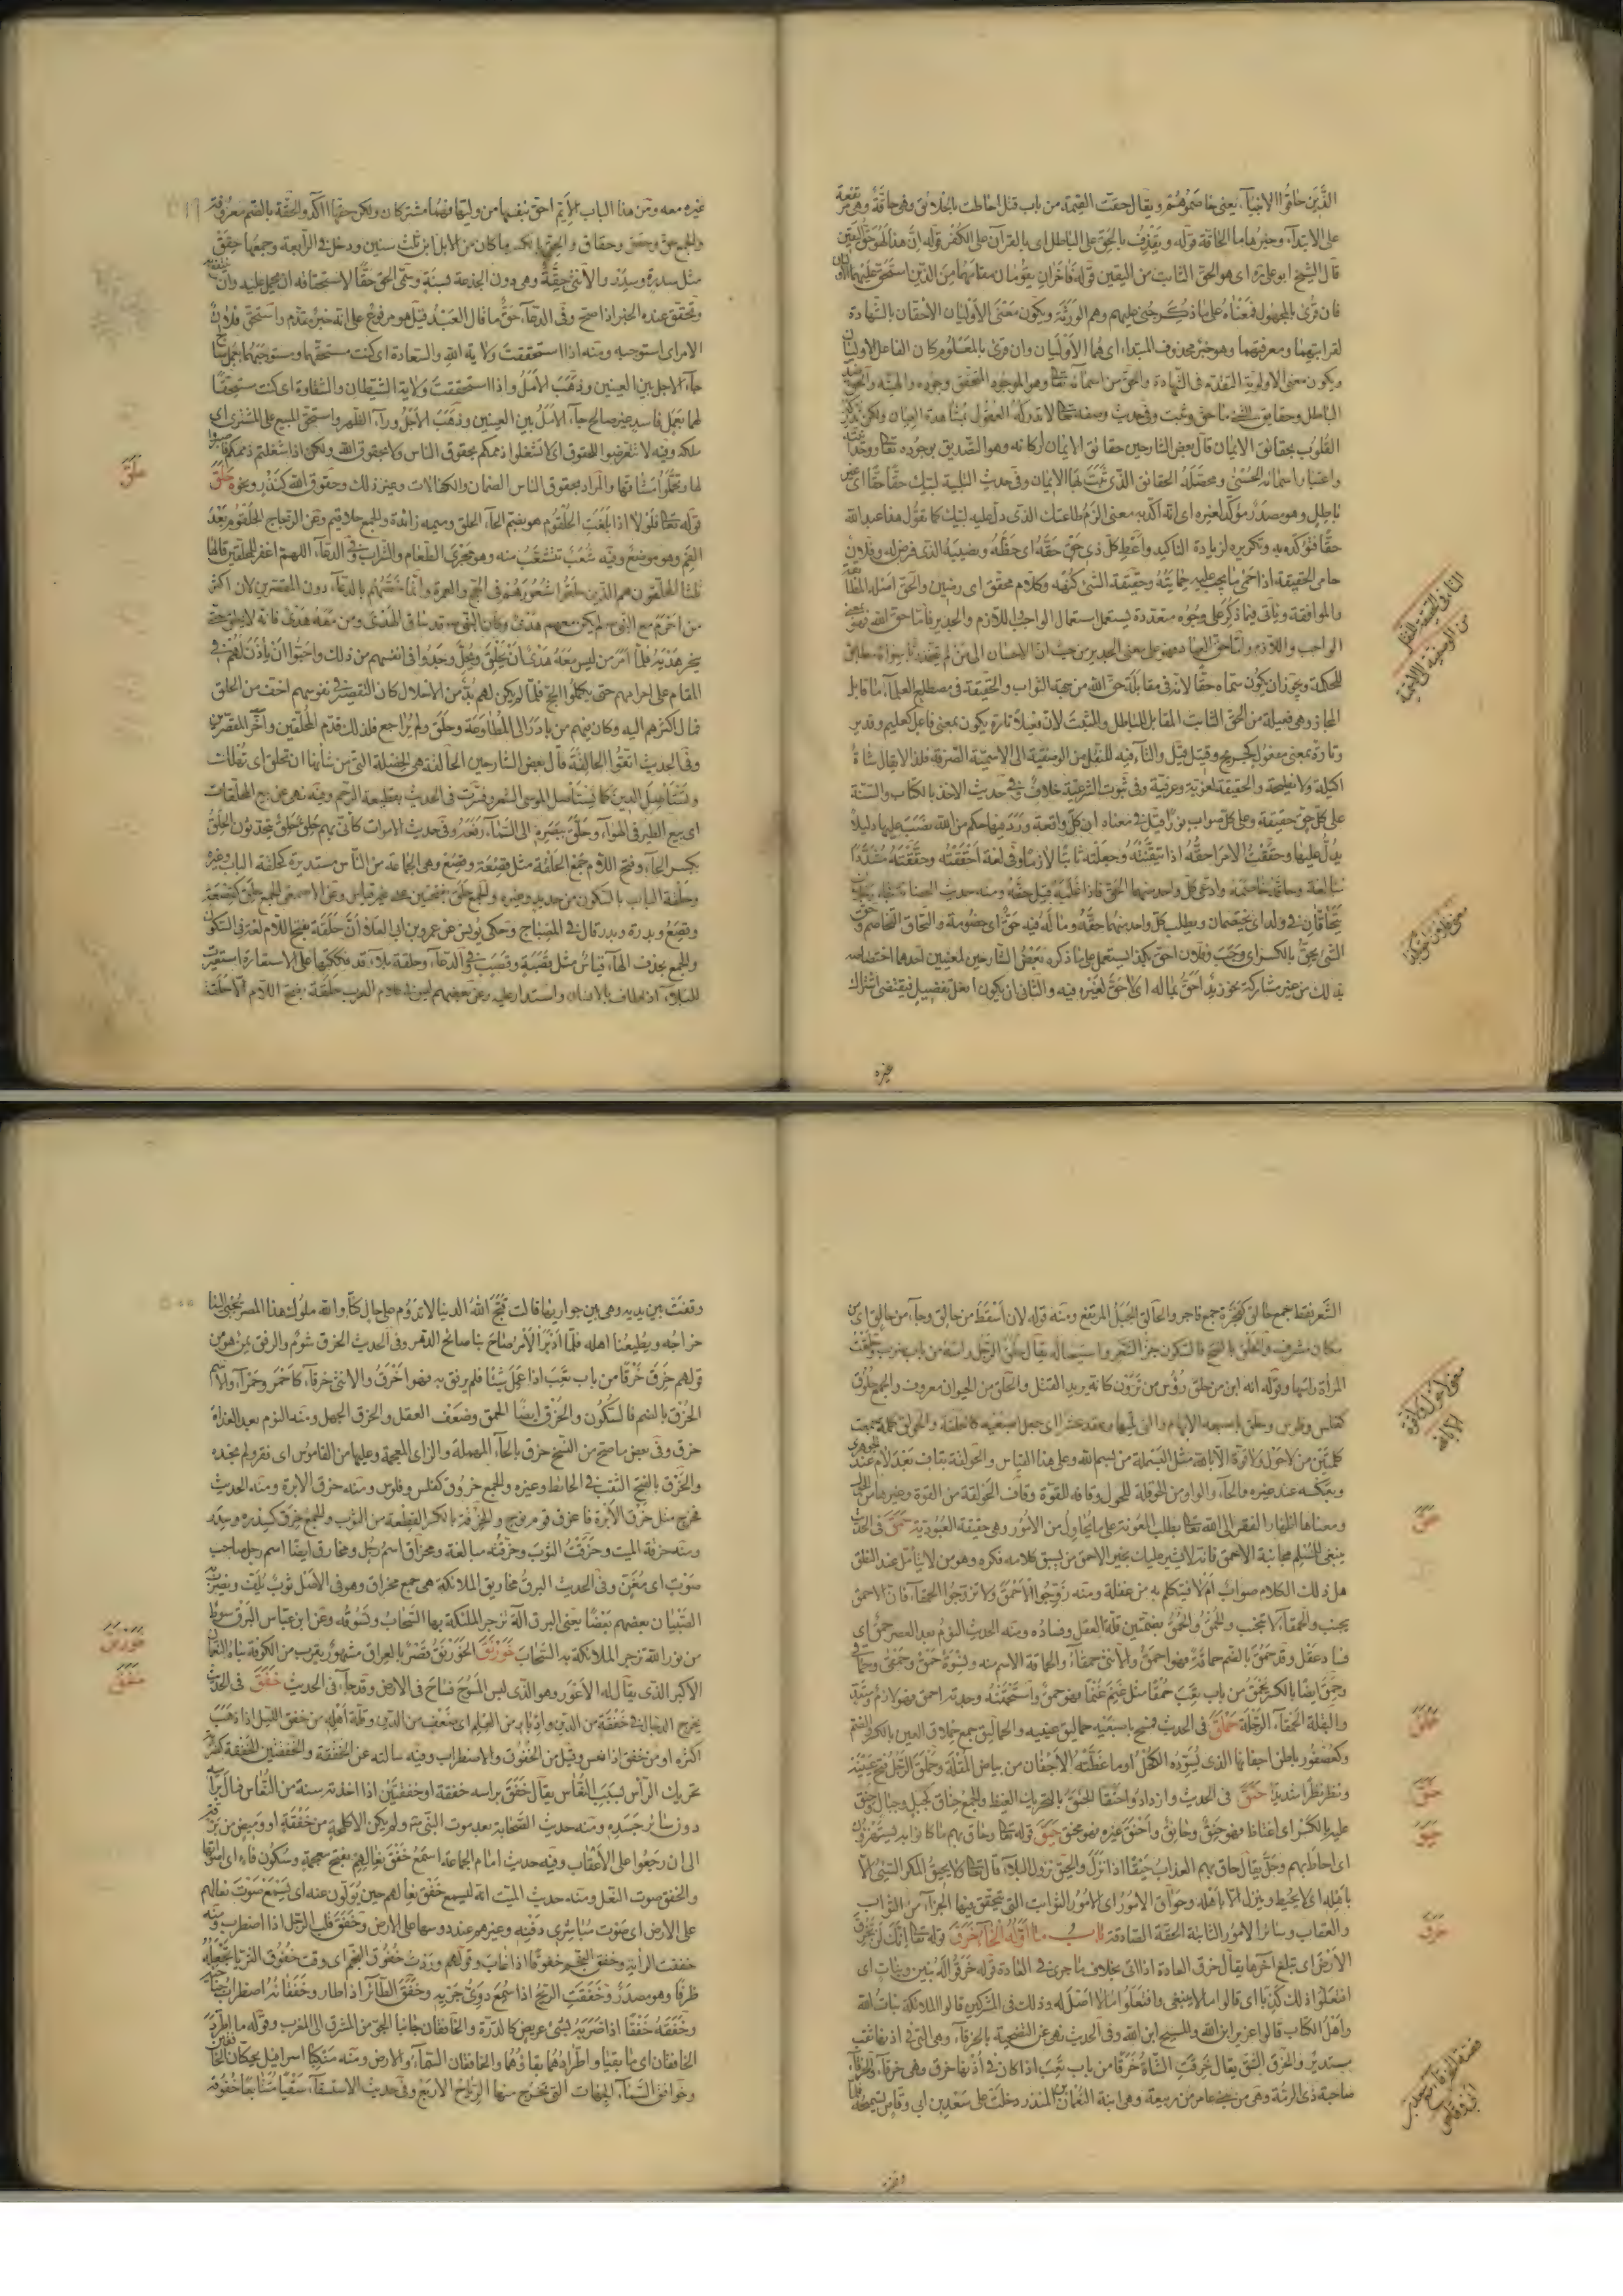 الذين حاقوا الانبياء يعني خاصموهم ويقال حقت القيمة من باب قتل احاطت بالخلائق وهي حاقة وهي
على الابتداء وخبرها ما الحاقة قوله ويقذف بالحق على الباطل اي بالقرآن على الكفر قوله ان هذا لهو حق اليقين
قال الشيخ ابو علي ره اي هو الحق الثابت من اليقين قوله فآخران يقومان مقامهما من الذين استحق عليهما
فان قرئ بالمجهول فمعناه على ما ذكر جنى عليهم وهم الورثة ويكون معنى الاوليان الاحقان بالشهادة
لقرابتهما ومعرفتهما وهو خبر محذوف المبتداء اي هما الاوليان وان قرئ بالمعلوم كان الفاعل الاوليان
ويكون معنى الاولوية التقدم في الشهادة والحق من اسمائه تعا وهو الموجود المتحقق وجوده والهيته والحق
الباطل وحقايق الشئ ما حق وثبت وفي حديث وصفه تعا لا تدركه العقول بمشاهدة العيان ولكن تدركه
القلوب بحقائق الايمان قال بعض الشارحين حقائق الايمان اركانه وهو التصديق بوجوده تعا
واعتبار اسمائه الحسنى ومحصله الحقائق الذي ثبت لها الايمان وفي حديث التلبية لبيك حقا حقا اي غير
باطل وهو مصدر مؤكد لغيره اي انه اكد به معنى الزم طاعتك الذي دل عليه لبيك كما تقول هذا عبد الله
حقا فتؤكده به وتكريره لزيادة التاكيد واعط كل ذي حق حقه اي حظه ونصيبه الذي فرض له وفلان
حامي الحقيقة اذا حمى ما يجب عليه حمايته وحقيقة الشئ كنهه وكلام محقق اي رصين والحق اصله المطابقة
والموافقة ويأتي فيما ذكر على وجوه متعددة يستعمل استعمال الواجب اللازم والجدير فاما حق الله فهو بمعنى
الواجب واللازم واما حق العباد فهو على معنى الجدير من حيث ان الاحسان الى من لم يتخذ ربا سواه مطابق
للحكمة ويجوز ان يكون سماه حقا لانه في مقابلة حق الله من جهة الثواب والحقيقة في مصطلح العلماء ما قابل
المجاز وهي فعيلة من الحق الثابت المقابل للباطل والمثبت لان فعيلا تارة يكون بمعنى فاعل كعليم وقدير
وتارة بمعنى مفعول كجريح وقتيل والتاء فيه للنقل من الوصفية الى الاسمية الصرفة فلذا لا يقال شاة
اكيلة ولا نطيحة والحقيقة لغوية وعرفية وفي ثبوت الشرعية خلاف وفي حديث الاخذ بالكتاب والسنة
على كل حق حقيقة وعلى كل صواب نورا قيل في معناه ان كل واقعة ورد فيها حكم من الله نصب عليها دليلا
يدل عليها وحققت الامر احقه اذا تيقنته وجعلته ثابتا لازما وفي لغة احققته وحققته مشددا
مبالغة وحاقه خاصمه وادعى كل واحد منهما الحق فاذا غلبه قيل حقه ومنه حديث الحضانة
يتحاقان في ولد اي يختصمان ويطلب كل واحد منهما حقه وما له فيه حق اي خصومة والتحاق التخاصم وحق
الشئ يحق بالكسر اي وجب وفلان احق بكذا يستعمل على ما ذكره بعض الشارحين لمعنيين احدهما اختصاصه
بذلك من غير مشاركة نحو زيد احق بماله اي لا حق لغيره فيه والثاني ان يكون افعل تفضيل فيقتضي اشتراك
غيره
غيره معه ومن هذا الباب الايم احق بنفسها من وليها فهما مشتركان ولكن حقها آكد والحقة بالضم معروفة
والجمع حق وحقق وحقاق والحق بالكسر ما كان من الابل ابن ثلث سنين ودخل في الرابعة وجمعها حقق
مثل سدرة وسدر والانثى حقة وهي دون الجذعة بسنة وسمي الحق حقا لاستحقاقه ان يحمل عليه وان
وتحقق عنده الخبر اذا صح وفي الدعاء حق ما قال العبد قيل هو مرفوع على انه خبر مقدم واستحق فلان
الامر اي استوجبه ومنه اذا استحققت ولاية الله والسعادة اي كنت مستحقها ومستوجبها بعمل صالح
جاء الاجل بين العينين وذهب الامل واذا استحققت ولاية الشيطان والشقاوة اي كنت مستحقا
لهما بعمل فاسد غير صالح جاء الامل بين العينين وذهب الاجل وراء الظهر واستحق المبيع على المشتري اي
ملكه وفيه لا تتعرضوا للحقوق اي لا تشغلوا ذممكم بحقوق الناس ولا بحقوق الله ولكن اذا شغلتم ذممكم فاصبروا
لها وتحملوا مشاقها والمراد بحقوق الناس الضمان والكفالات وغير ذلك وحقوق الله كنذر ونحوه حلق
قوله تعا فلولا اذا بلغت الحلقوم هو بضم الحاء الحلق وميمه زائدة والجمع حلاقيم وعن الزجاج الحلقوم بعد
الفم وهو موضع وفيه شعب تتشعب منه وهو مجرى الطعام والشراب وفي الدعاء اللهم اغفر للمحلقين قالها
ثلثا المحلقون هم الذين حلقوا شعورهم في الحج والعمرة وانما خصهم بالدعاء دون المقصرين لان اكثر
من احرم مع النبي ص لم يكن معهم هدي وكان النبي ص قد ساق الهدي ومن معه هدي فانه لا يحلق حتى
ينحر هديه فلما امر من ليس معه هدي ان يحلق ويحل وجدوا في انفسهم من ذلك واحبوا ان يأذن لهم في
المقام على احرامهم حتى يكملوا الحج فلما لم يكن لهم بد من الاحلال كان التقصير في نفوسهم اخف من الحلق
فمال اكثرهم اليه وكان فيهم من بادر الى المطاوعة وحلق ولم يراجع فلذلك قدم المحلقين واخر المقصرين
وفي الحديث اتقوا الحالقة قال بعض الشارحين الحالقة هي الخصلة التي من شأنها ان تحلق اي تهلك
وتستأصل الدين كما يستأصل الموسى الشعر وفسرت في الحديث بقطيعة الرحم وفيه نهى عن بيع المحلقات
اي بيع الطير في الهواء وحلق ببصره الى السماء رفعه وفي حديث الاموات كأني بهم حلق حلق يتحدثون الحلق
بكسر الحاء وفتح اللام جمع الحلقة مثل قصعة وقصع وهي الجماعة من الناس مستديرة كحلقة الباب وغيره
وحلقة الباب بالسكون من حديد وغيره والجمع حلق بفتحتين على غير قياس وعن الاصمعي الجمع حلق كقصعة
وقصع وبدرة وبدر قال في المصباح وحكى يونس عن عمرو بن ابي العلاء ان حلقة بفتح اللام لغة في السكون
والجمع بحذف الهاء قياس مثل قصبة وقصب وفي الدعاء وحلقة بلاء قد فككتها على الاستعارة استعيرت
للبلاء اذ اطاف بالانسان واستدار عليه وعن بعضهم ليس في كلام العرب حلقة بفتح اللام الا حلقة
حلق
الشعر فقط جمع حالق كفجرة جمع فاجر والحالق الجبل المرتفع ومنه قوله لان اسقط من حالق وجاء من حالق اي من
مكان مشرف والحلق بالفتح فالسكون جز الشعر واستيصاله يقال حلق الرجل راسه من باب ضرب وحلقت
المرأة رأسها وقوله انه ابن من حلق رؤس من ترون كانه يريد القتل والحلق من الحيوان معروف والجمع حلوق
كفلس وفلوس وحلق باصبعه الابهام والتي تليها وعقد عشرا اي جعل اصبعيه كالحلقة والحولق كلمة جمعت
كلمتين من لا حول ولا قوة الا بالله مثل البسملة من بسم الله وعلى هذا القياس والحولقة بقاف بعد لام عند الجوهري
وبعكسه عند غيره والحاء والواو من الحوقلة للحول وقافه للقوة وقاف الحولقة من القوة وغيرها من الحول
ومعناها اظهار الفقر الى الله تعا بطلب المعونة على ما يحاول من الامور وهي حقيقة العبودية حمق في الحديث
ينبغي للمسلم مجانبة الاحمق فانه لا يشير عليك بخير الاحمق من يسبق كلامه فكره وهو من لا يتأمل عند النطق
هل ذلك الكلام صواب ام لا فيتكلم به من غفلة ومنه زوجوا الاحمق ولا تزوجوا الحمقاء فان الاحمق
ينجب والحمقاء لا تنجب والحمق والحمق بضمتين قلة العقل وفساده ومنه الحديث النوم بعد العصر حمق اي
فساد عقل وقد حمق بالضم حماقة فهو احمق والانثى حمقاء والحماقة الاسم منه ونسوة حمق وحمقى وحماقى
وحمق ايضا بالكسر يحمق من باب تعب حمقا مثل غنم غنما فهو حمق واستحمقته وجدته احمق فهو لازم ومتعد
والبقلة الحمقاء الرجلة حملق في الحديث فتح باصبعيه حماليق عينيه والحماليق جمع حملاق العين بالكسر والضم
وكعصفور باطن اجفانها الذي يسوده الكحل او ما غطته الاجفان من بياض المقلة وحملق الرجل فتح عينيه
ونظر نظرا شديدا حنق في الحديث وازدادوا حنقا الحنق بالتحريك الغيظ والجمع حناق كجبل وجبال وحنق
عليه بالكسر اي اغتاظ فهو حنق وحانق واحنق غيره فهو محنق حيق قوله تعا وحاق بهم ما كانوا به يستهزؤن
اي احاط بهم وحل يقال حاق بهم العذاب حيقا اذا نزل والحيق نزول البلاء قال تعا لا يحيق المكر السيئ الا
باهله اي لا يحيط وينزل الا باهله وحواق الامور اي الامور الثوابت التي تتحقق فيها الجزاء من الثواب
والعقاب وسائر الامور الثابتة الحقة الصادقة باب ما اوله الخاء خرق قوله تعا انك لن تخرق
الارض اي تبلغ آخرها يقال خرق العادة اذا اتى بخلاف ما جرى في العادة قوله خرقوا له بنين وبنات اي
افتعلوا ذلك كذبا اي قالوا ما لا ينبغي وافتعلوا ما لا اصل له وذلك في المشركين قالوا الملائكة بنات الله
واهل الكتاب قالوا عزير ابن الله والمسيح ابن الله وفي الحديث نهى عن التضحية بالخرقاء وهي التي في اذنها ثقب
مستدير والخرق الشق يقال خرقت الشاة خرقا من باب تعب اذا كان في اذنها خرق وهي خرقاء والخرقاء
صاحبة ذي الرمة وهي من بني عامر من ربيعة وهي ابنة النعمان بن المنذر دخلت على سعد بن ابي وقاص
حمق
حملق
حنق
حيق
خرق
وقفت بين يديه وهي بين جواريها قالت قبح الله الدنيا لا تدوم على حال كنا والله ملوك هذا المصر يجبى الينا
خراجه ويطيعنا اهله فلما ادبر الامر صاح بنا صائح الدهر وفي الحديث الخرق شوم والرفق يمن هو من
قولهم خرق خرقا من باب تعب اذا عمل شيئا فلم يرفق به فهو اخرق والانثى خرقاء كاحمر وحمراء والاسم
الخرق بالضم فالسكون والخرق ايضا الحمق وضعف العقل والخرق الجهل ومنه النوم بعد الغداة
خرق وفي بعض ما صح من النسخ حزق بالحاء المهملة والزاي المعجمة وعليها من القاموس اي فقر ولم نجده
والخرق بالفتح الثقب في الحائط وغيره والجمع خروق كفلس وفلوس ومنه خرق الابرة ومنه الحديث
فخرج مثل خرق الابرة فاغرق قوم نوح والخرقة بالكسر القطعة من الثوب والجمع خرق كسدرة وسدر
ومنه خرقة الميت وخرقت الثوب وخرقته مبالغة ومخراق اسم رجل ومخارق ايضا اسم رجل صاحب
صوت اي مغن وفي الحديث البرق مخاريق الملائكة هي جمع مخراق وهو في الاصل ثوب يلف ويضرب به
الصبيان بعضهم بعضا يعني البرق آلة تزجر الملئكة بها السحاب وتسوقه وعن ابن عباس البرق سوط
من نور الله تزجر الملائكة به السحاب خورنق الخورنق قصر بالعراق مشهور بقرب من الكوفة بناه النعمان
الاكبر الذي يقال له الاعور وهو الذي لبس المسوح فساح في الارض وقد جاء في الحديث خفق في الحديث
يخرج الدجال في خفقة من الدين وادبار من العلم اي ضعف من الدين وقلة اهله من خفق الليل اذا ذهب
اكثره او من خفق اذا نعس وقيل من الخفوق والاضطراب وفيه سالته عن الخفقة والخفقتين الخفقة كضربة
تحريك الرأس لسبب النعاس يقال خفق براسه خفقة او خفقتين اذا اخذته سنة من النعاس فمال براسه
دون سائر جسده ومنه حديث الصحابة بعد موت النبي ص ولم يكن الا كلمحة من خفقة او وميض من برقة
الى ان رجعوا على الاعقاب وفيه حديث امام الجماعة استمع خفق نعالهم بفتح معجمة وسكون فاء اي اصواتها
والخفق صوت النعل ومنه حديث الميت انه ليسمع خفق نعالهم حين يولون عنه اي يسمع صوت نعالهم
على الارض اي صوت مباشري دفنه وغيرهم عند دوسها على الارض وخفق قلب الرجل اذا اضطرب ومنه
خفقت الراية وخفق النجم خفوقا اذا غاب وقولهم وردت خفوق النجم اي وقت خفوق الثريا تجعله
ظرفا وهو مصدر وخفقت الريح اذا سمع دوي جريه وخفق الطائر اذا طار وخفقانه اضطراب جناحه
وخفقه خفقا اذا ضربه بشئ عريض كالدرة والخافقان جانبا الجو من المشرق الى المغرب وقوله ما اطرد
الخافقان اي ما بقيا واطرادهما بقاؤهما والخافقان السماء والارض ومنه منكبا اسرافيل يحكان الخافقين
وخوافق السماء الجهات التي تخرج منها الرياح الاربع وفي حديث الاستسقاء سقيا متتابعا خفوقه
خورنق
خفق